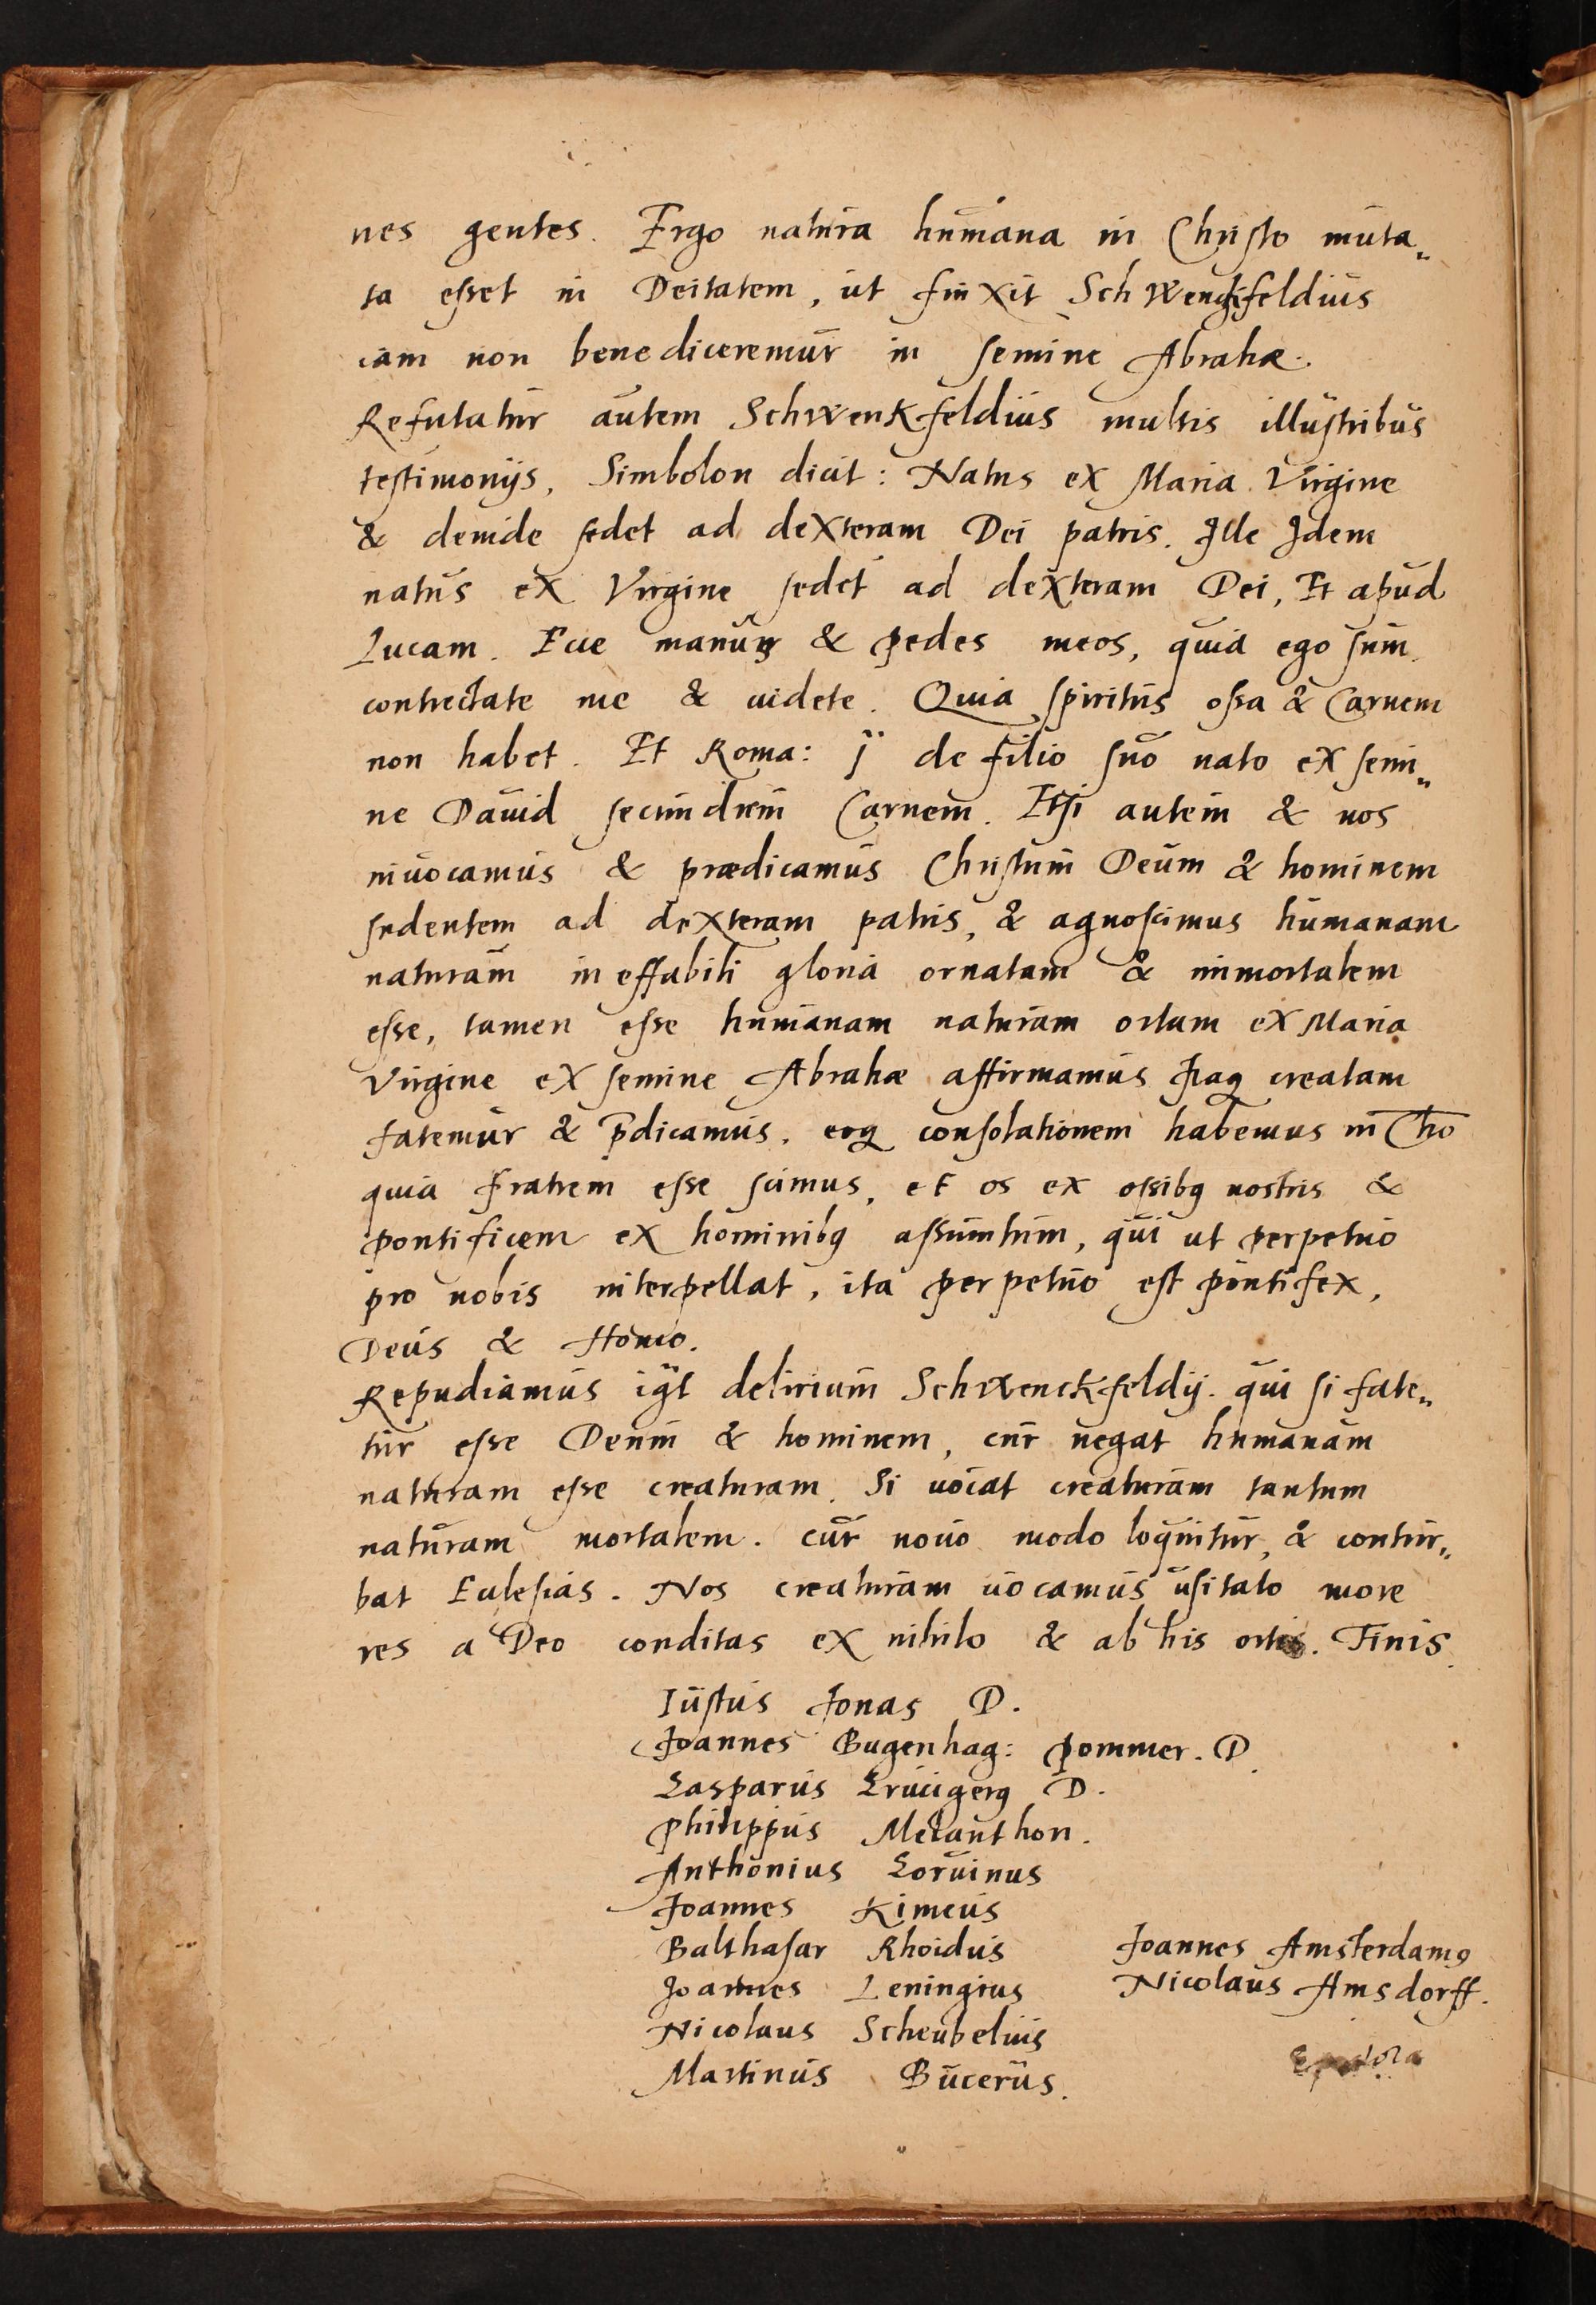 nes gentes. Ergo natura humana in Christo muta„
ta esset in Deitatem, ut finxit Schwenckfeldius
iam non benediceremur in semine Abrahæ.
Refutatur autem Schwenkfeldius multis illustribus
testimonijs, Simbolon dicit: Natus ex Maria Virgine
& deinde sedet ad dexteram Dei patris. Ille Idem
natus ex Virgine sedet ad dexteram Dei, Et apud
Lucam. Ecce manus & pedes meos, quia ego sum
contrectate me & uidete. Quia spiritus ossa & Carnem
non habet. Et Roma: j de filio suo nato ex semi„
ne Dauid secundum Carnem. Etsi autem & nos
inuocamus & prædicamus Christum Deum & hominem
sedentem ad dexteram patris, & agnoscimus humanam
naturam ineffabili gloria ornatam & immortalem
esse, tamen esse humanam naturam ortam ex Maria
Virgine ex semine Abrahæ affirmamus Itaq creatam
fatemur & p̄dicamus. eoq consolationem habemus in Chō
quia fratrem esse scimus, et os ex ossibq nostris &
pontificem ex hominibq assumtum, qui ut perpetuo
pro nobis interpellat, ita perpetuo est pontifex,
Deus & Homo.
Repudiamus igt delirium Schwenckfeldij. qui si fate„
tur esse Deum & hominem, cur negat humanam
naturam esse creaturam. Si uocat creaturam tantum
naturam mortalem. cur nouo modo loquitur, & contur„
bat Ecclesias. Nos creaturam uocamus usitato more
res a Deo conditas ex nihilo & ab his ortis. Finis.
Iustus Jonas D.
Joannes Bugenhag: Pommer. D.
Casparus Crucigerq D.
Philippus Melanthon.
Anthonius Coruinus
Joannes Kimeus
Balthasar Rhoidus
Joannes Leningius
Nicolaus Scheubelius
Martinus Bucerus.
Joannes Amsterdamq
Nicolaus Amsdorff.